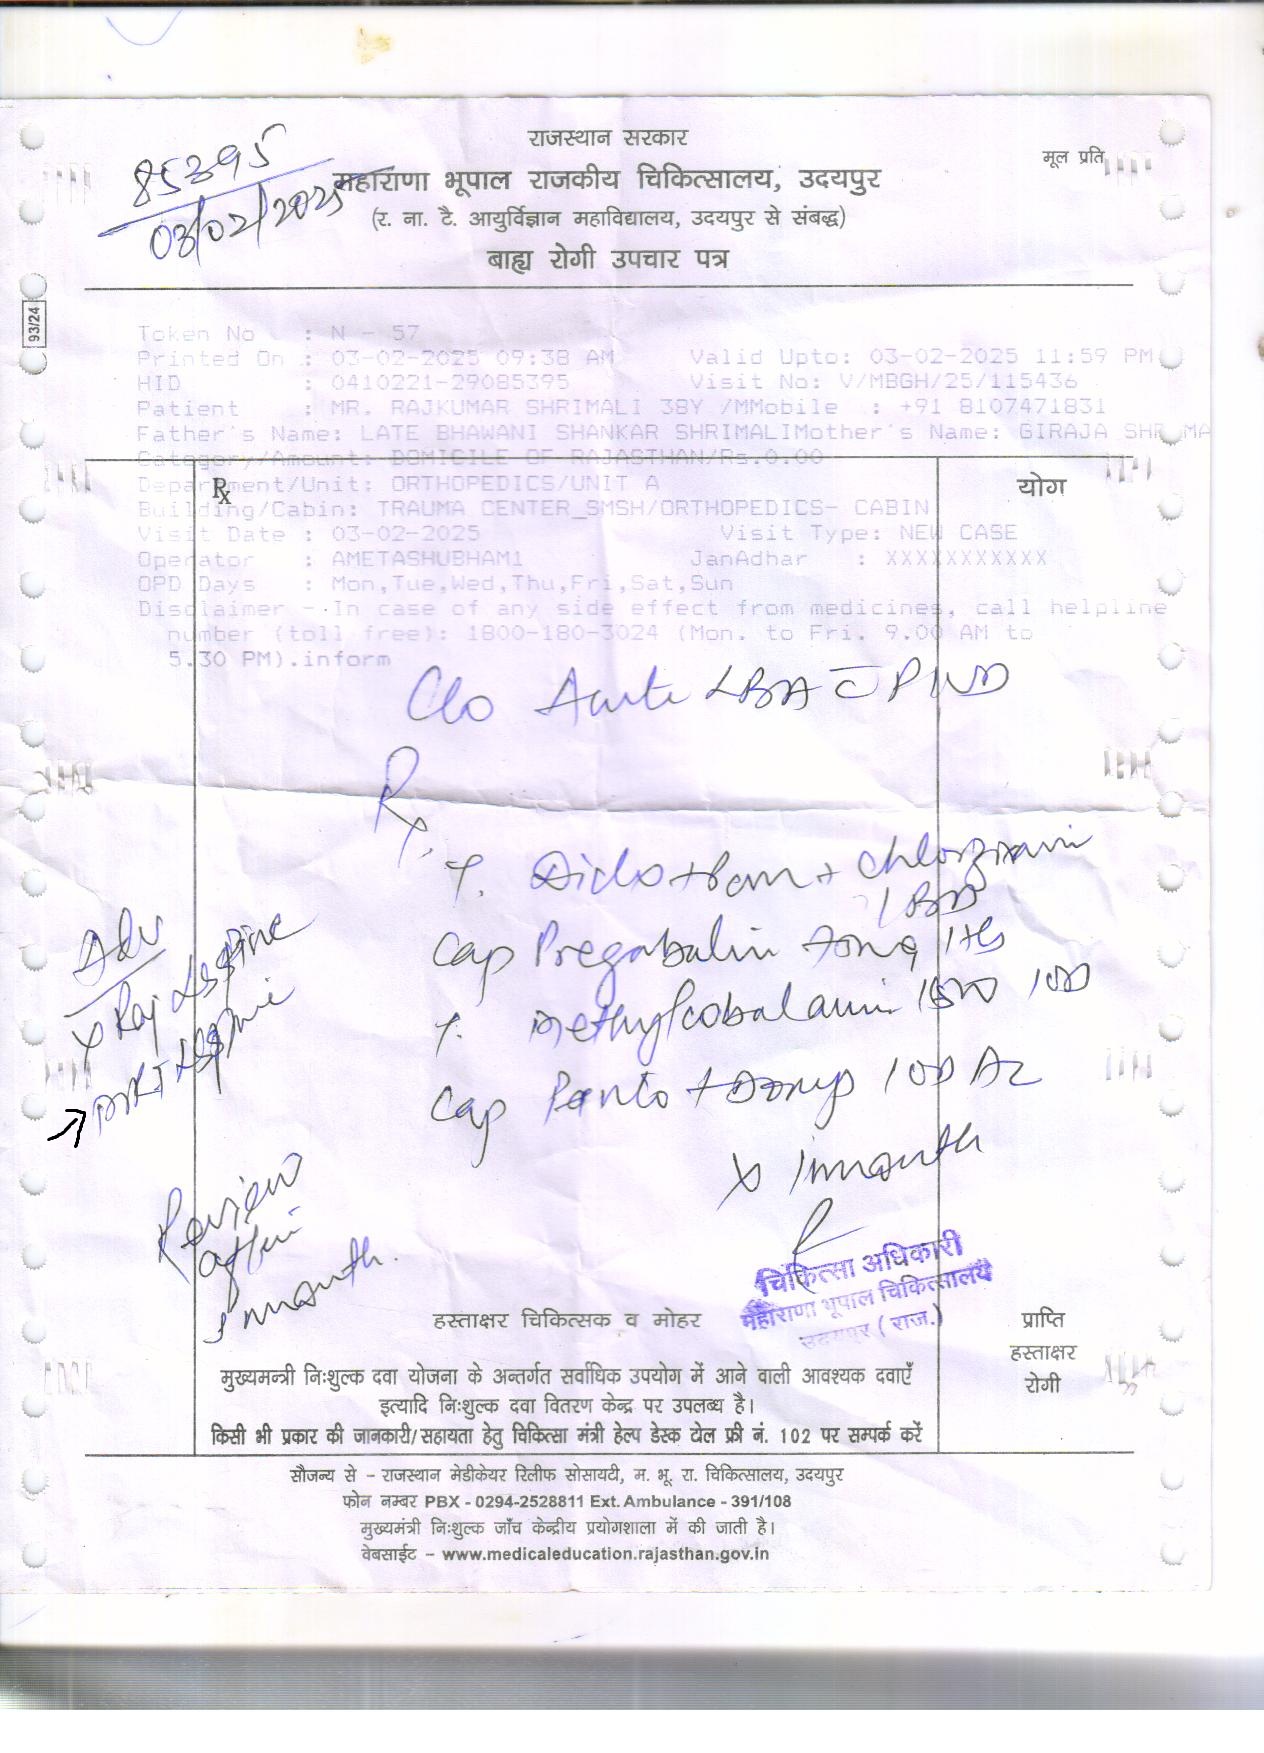 85395
03/02/2025
राजस्थान सरकार
मूल प्रति
महाराणा भूपाल राजकीय चिकित्सालय, उदयपुर
(र. ना. टै. आयुर्विज्ञान महाविद्यालय, उदयपुर से संबद्ध)
बाह्य रोगी उपचार पत्र
93/24
Token No : N - 57
Printed On : 03-02-2025 09:38 AM Valid Upto: 03-02-2025 11:59 PM
HID : 0410221-29085395 Visit No: V/MBGH/25/115436
Patient : MR. RAJKUMAR SHRIMALI 38Y /MMobile : +91 8107471831
Father's Name: LATE BHAWANI SHANKAR SHRIMALIMother's Name: GIRAJA SHRIMA
Category/Amount: DOMICILE OF RAJASTHAN/Rs.0.00
Department/Unit: ORTHOPEDICS/UNIT A
℞ योग
Building/Cabin: TRAUMA CENTER_SMSH/ORTHOPEDICS- CABIN
Visit Date : 03-02-2025 Visit Type: NEW CASE
Operator : AMETASHUBHAM1 JanAdhar : XXXXXXXXXXX
OPD Days : Mon,Tue,Wed,Thu,Fri,Sat,Sun
Disclaimer - In case of any side effect from medicines, call helpline
number (toll free): 1800-180-3024 (Mon. to Fri. 9.00 AM to
5.30 PM).inform
C/o Acute LBA c̄ PIVD
Rx
T. Diclo + Pam + Chlorzoxami
1 BD
Cap Pregabalin 75mg 1 HS
T. Methylcobalamin 1500 1 OD
Cap Panto + Domp 1 OD AC
x 1 month
Adv
X Ray LS Spine
MRI LS Spine
Review
after
1 month.
चिकित्सा अधिकारी
महाराणा भूपाल चिकित्सालय
उदयपुर ( राज.)
हस्ताक्षर चिकित्सक व मोहर
प्राप्ति
हस्ताक्षर
रोगी
मुख्यमन्त्री निःशुल्क दवा योजना के अन्तर्गत सर्वाधिक उपयोग में आने वाली आवश्यक दवाएँ
इत्यादि निःशुल्क दवा वितरण केन्द्र पर उपलब्ध है।
किसी भी प्रकार की जानकारी/सहायता हेतु चिकित्सा मंत्री हेल्प डेस्क टोल फ्री नं. 102 पर सम्पर्क करें
सौजन्य से – राजस्थान मेडीकेयर रिलीफ सोसायटी, म. भू. रा. चिकित्सालय, उदयपुर
फोन नम्बर PBX - 0294-2528811 Ext. Ambulance - 391/108
मुख्यमंत्री निःशुल्क जाँच केन्द्रीय प्रयोगशाला में की जाती है।
वेबसाईट – www.medicaleducation.rajasthan.gov.in